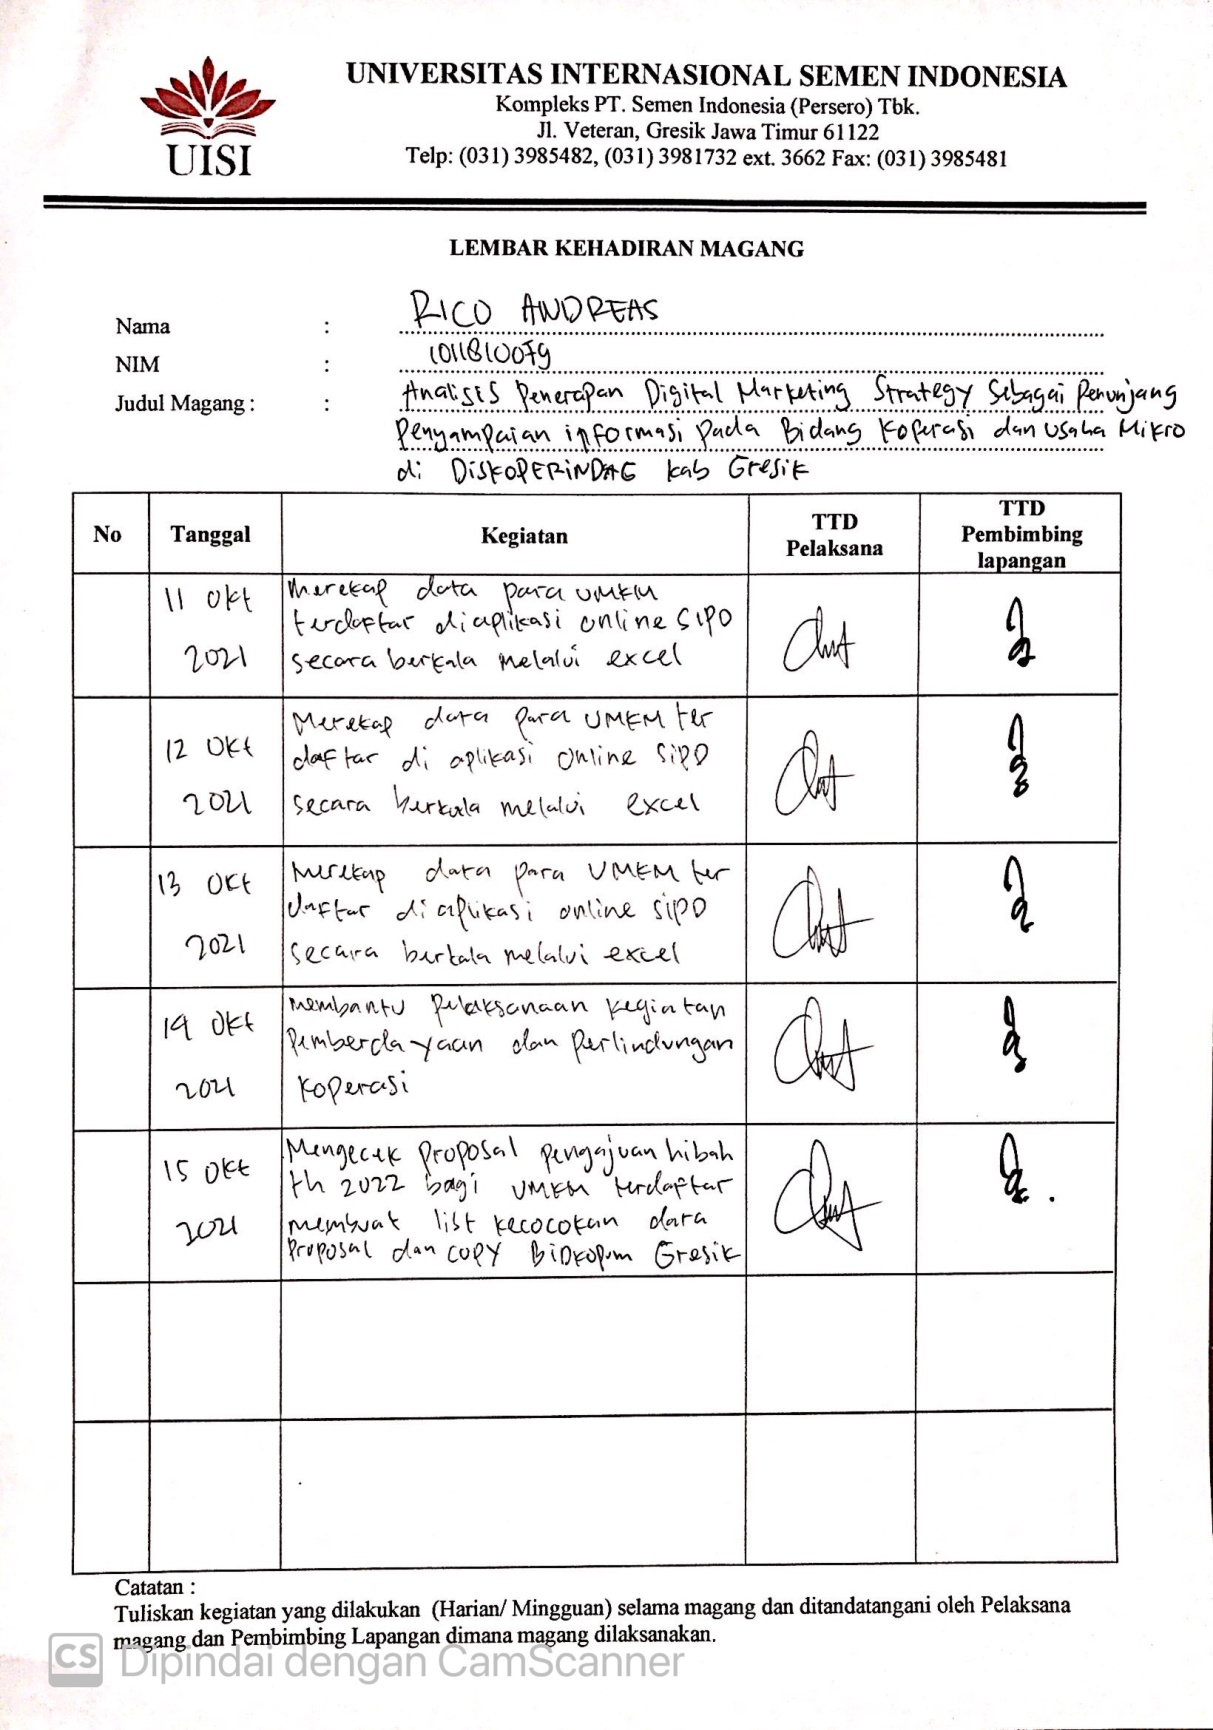 UISI
UNIVERSITAS INTERNASIONAL SEMEN INDONESIA
Kompleks PT. Semen Indonesia (Persero) Tbk.
Jl. Veteran, Gresik Jawa Timur 61122
Telp: (031) 3985482, (031) 3981732 ext. 3662 Fax: (031) 3985481
LEMBAR KEHADIRAN MAGANG
Nama : RICO ANDREAS
NIM : 1011810079
Judul Magang : : Analisis Penerapan Digital Marketing Strategy Sebagai Penunjang
Penyampaian informasi pada Bidang Koperasi dan Usaha Mikro
di DISKOPERINDAG kab Gresik
No Tanggal Kegiatan TTD Pelaksana TTD Pembimbing lapangan
11 Okt
2021
Merekap data para UMKM
terdaftar diaplikasi online SIPO
secara berkala melalui excel
12 Okt
2021
Merekap data para UMKM ter
daftar di aplikasi online SIPO
secara berkala melalui excel
13 Okt
2021
Merekap data para UMKM ter
daftar di aplikasi online SIPO
secara berkala melalui excel
14 Okt
2021
Membantu pelaksanaan kegiatan
Pemberdayaan dan Perlindungan
Koperasi
15 Okt
2021
Mengecek proposal pengajuan hibah
th 2022 bagi UMKM terdaftar
membuat list kecocokan data
Proposal dan copy Gresik
Catatan :
Tuliskan kegiatan yang dilakukan (Harian/ Mingguan) selama magang dan ditandatangani oleh Pelaksana
magang dan Pembimbing Lapangan dimana magang dilaksanakan.
CS Dipindai dengan CamScanner